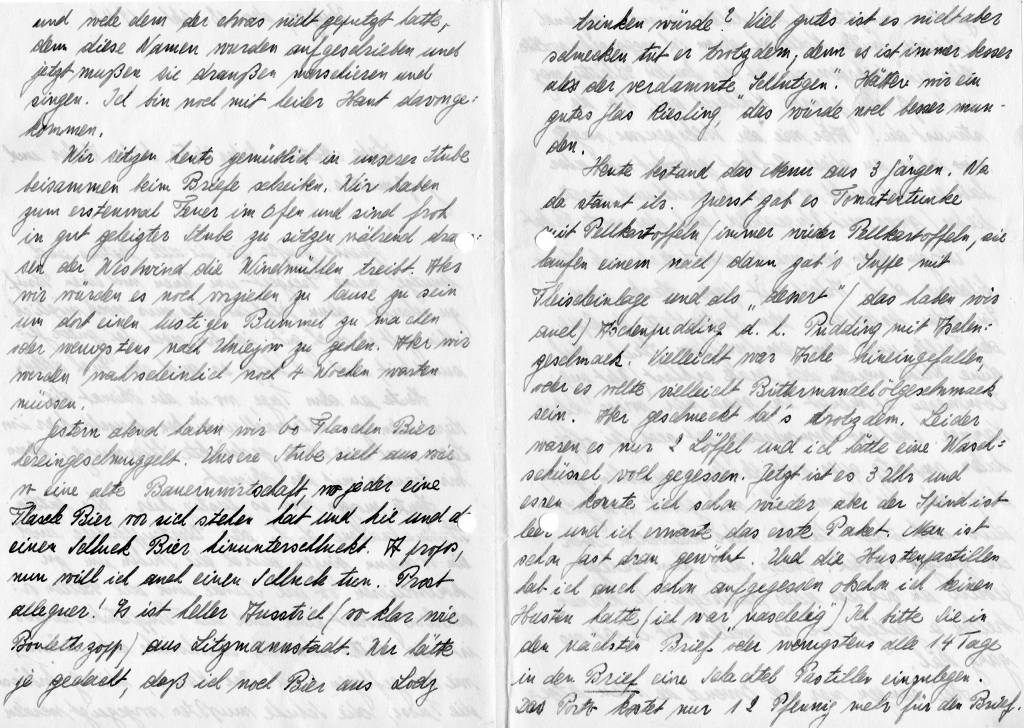 und wehe dem der etwas nicht geputzt hatte,
denn diese Namen wurden aufgeschrieben und
jetzt mußen sie draußen marschieren und
singen. Ich bin noch mit heiler Haut davonge-
kommen.
Wir sitzen heute gemütlich in unserer Stube
beisammen beim Briefe schreiben. Wir haben
zum erstenmal Feuer im Ofen und sind froh
in gut geheizter Stube zu sitzen während drau-
sen der Westwind die Windmühlen treibt. Aber
wir würden es noch vorziehen zu hause zu sein
um dort einen lustigen Bummel zu machen
oder wenigstens nach Uniejow zu gehen. Aber wir
werden wahrscheinlich noch 4 Wochen warten
müssen.
Gestern abend haben wir 60 Flaschen Bier
hereingeschmuggelt. Unsere Stube sieht aus wie
so eine alte Bauernwirtschaft, wo jeder eine
Flasche Bier vor sich stehen hat und hie und da
einen Schluck Bier hinunterschluckt. A propos,
nun will ich auch einen Schluck tun. Prost
allegner! Es ist heller Ausstich (so klar wie
) aus Litzmannstadt. Wer hätte
je gedacht, daß ich noch Bier aus Lodz
trinken würde? Viel gutes ist es nicht aber
schmecken tut er trotzdem, denn es ist immer besser
als der verdammte . Hätten wir ein
gutes Glas "Riesling" das würde noch besser mun-
den.
Heute bestand das Menu aus 3 Gängen. Na
da staunt ihr. Zuerst gab es Tomatentunke
mit Pellkartoffeln (immer wieder Pellkartoffeln, sie
laufen einem nach) dann gab's Suppe mit
Fleischeinlage und als "dessert" (das haben wir
auch) Aschenpudding d. h. Pudding mit Aschen-
geschmack. Vielleicht war Asche hineingefallen,
oder es sollte vielleicht Bittermandelölgeschmack
sein. Aber geschmeckt hat's trotzdem. Leider
waren es nur 2 Löffel und ich hätte eine Wasch-
schüssel voll gegessen. Jetzt ist es 3 Uhr und
essen könnte ich schon wieder, aber der Spind ist
leer und ich erwarte das erste Paket. Man ist
schon fast dran gewöhnt. Und die Hustenpastillen
hab ich auch schon aufgegessen obschon ich keinen
Husten hatte (ich war ) Ich bitte Sie in
den nächsten Brief oder wenigstens alle 14 Tage
in den Brief eine Schachtel Pastillen einzulegen.
Das Porto kostet nur 12 Pfennig mehr für den Brief.